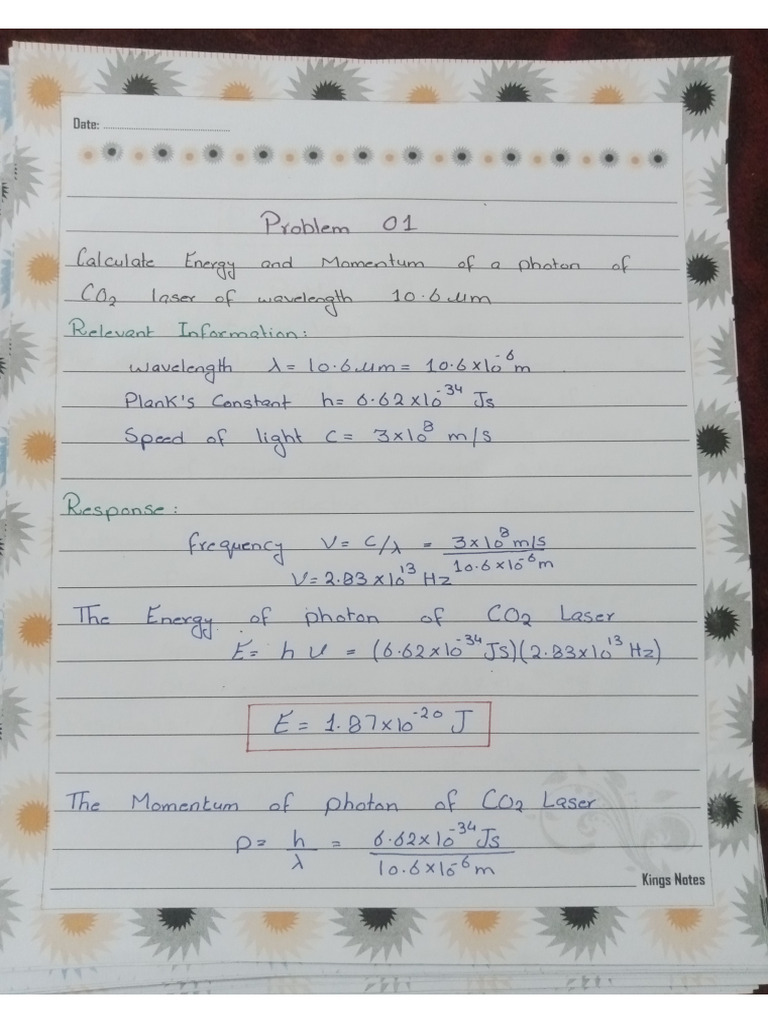 Date: ........................................
Problem 01
Calculate Energy and Momentum of a photon of
CO₂ laser of wavelength 10.6 μm
Relevant Information:
Wavelength λ = 10.6 μm = 10.6 × 10⁻⁶ m
Plank's Constant h = 6.62 × 10⁻³⁴ Js
Speed of light C = 3 × 10⁸ m/s
Response:
frequency ν = C/λ = 3 × 10⁸ m/s / 10.6 × 10⁻⁶ m
ν = 2.83 × 10¹³ Hz
The Energy of photon of CO₂ Laser
E = h ν = (6.62 × 10⁻³⁴ Js)(2.83 × 10¹³ Hz)
E = 1.87 × 10⁻²⁰ J
The Momentum of photon of CO₂ Laser
P = h / λ = 6.62 × 10⁻³⁴ Js / 10.6 × 10⁻⁶ m
Kings Notes